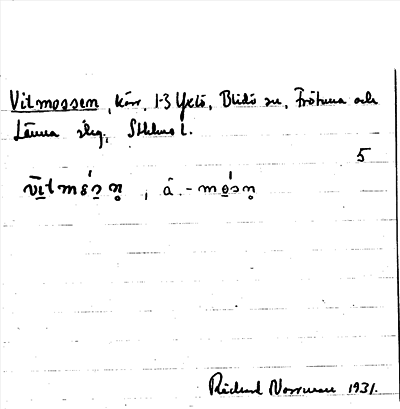 Vitmossen, kärr, 1-3 Yxlö, Blidö sn, Frötuna och
Länna skg, Sthlms l.
5
vi̲tmós̲n̥, å - mo̲s̲n̥
Rickard Norrman 1931.